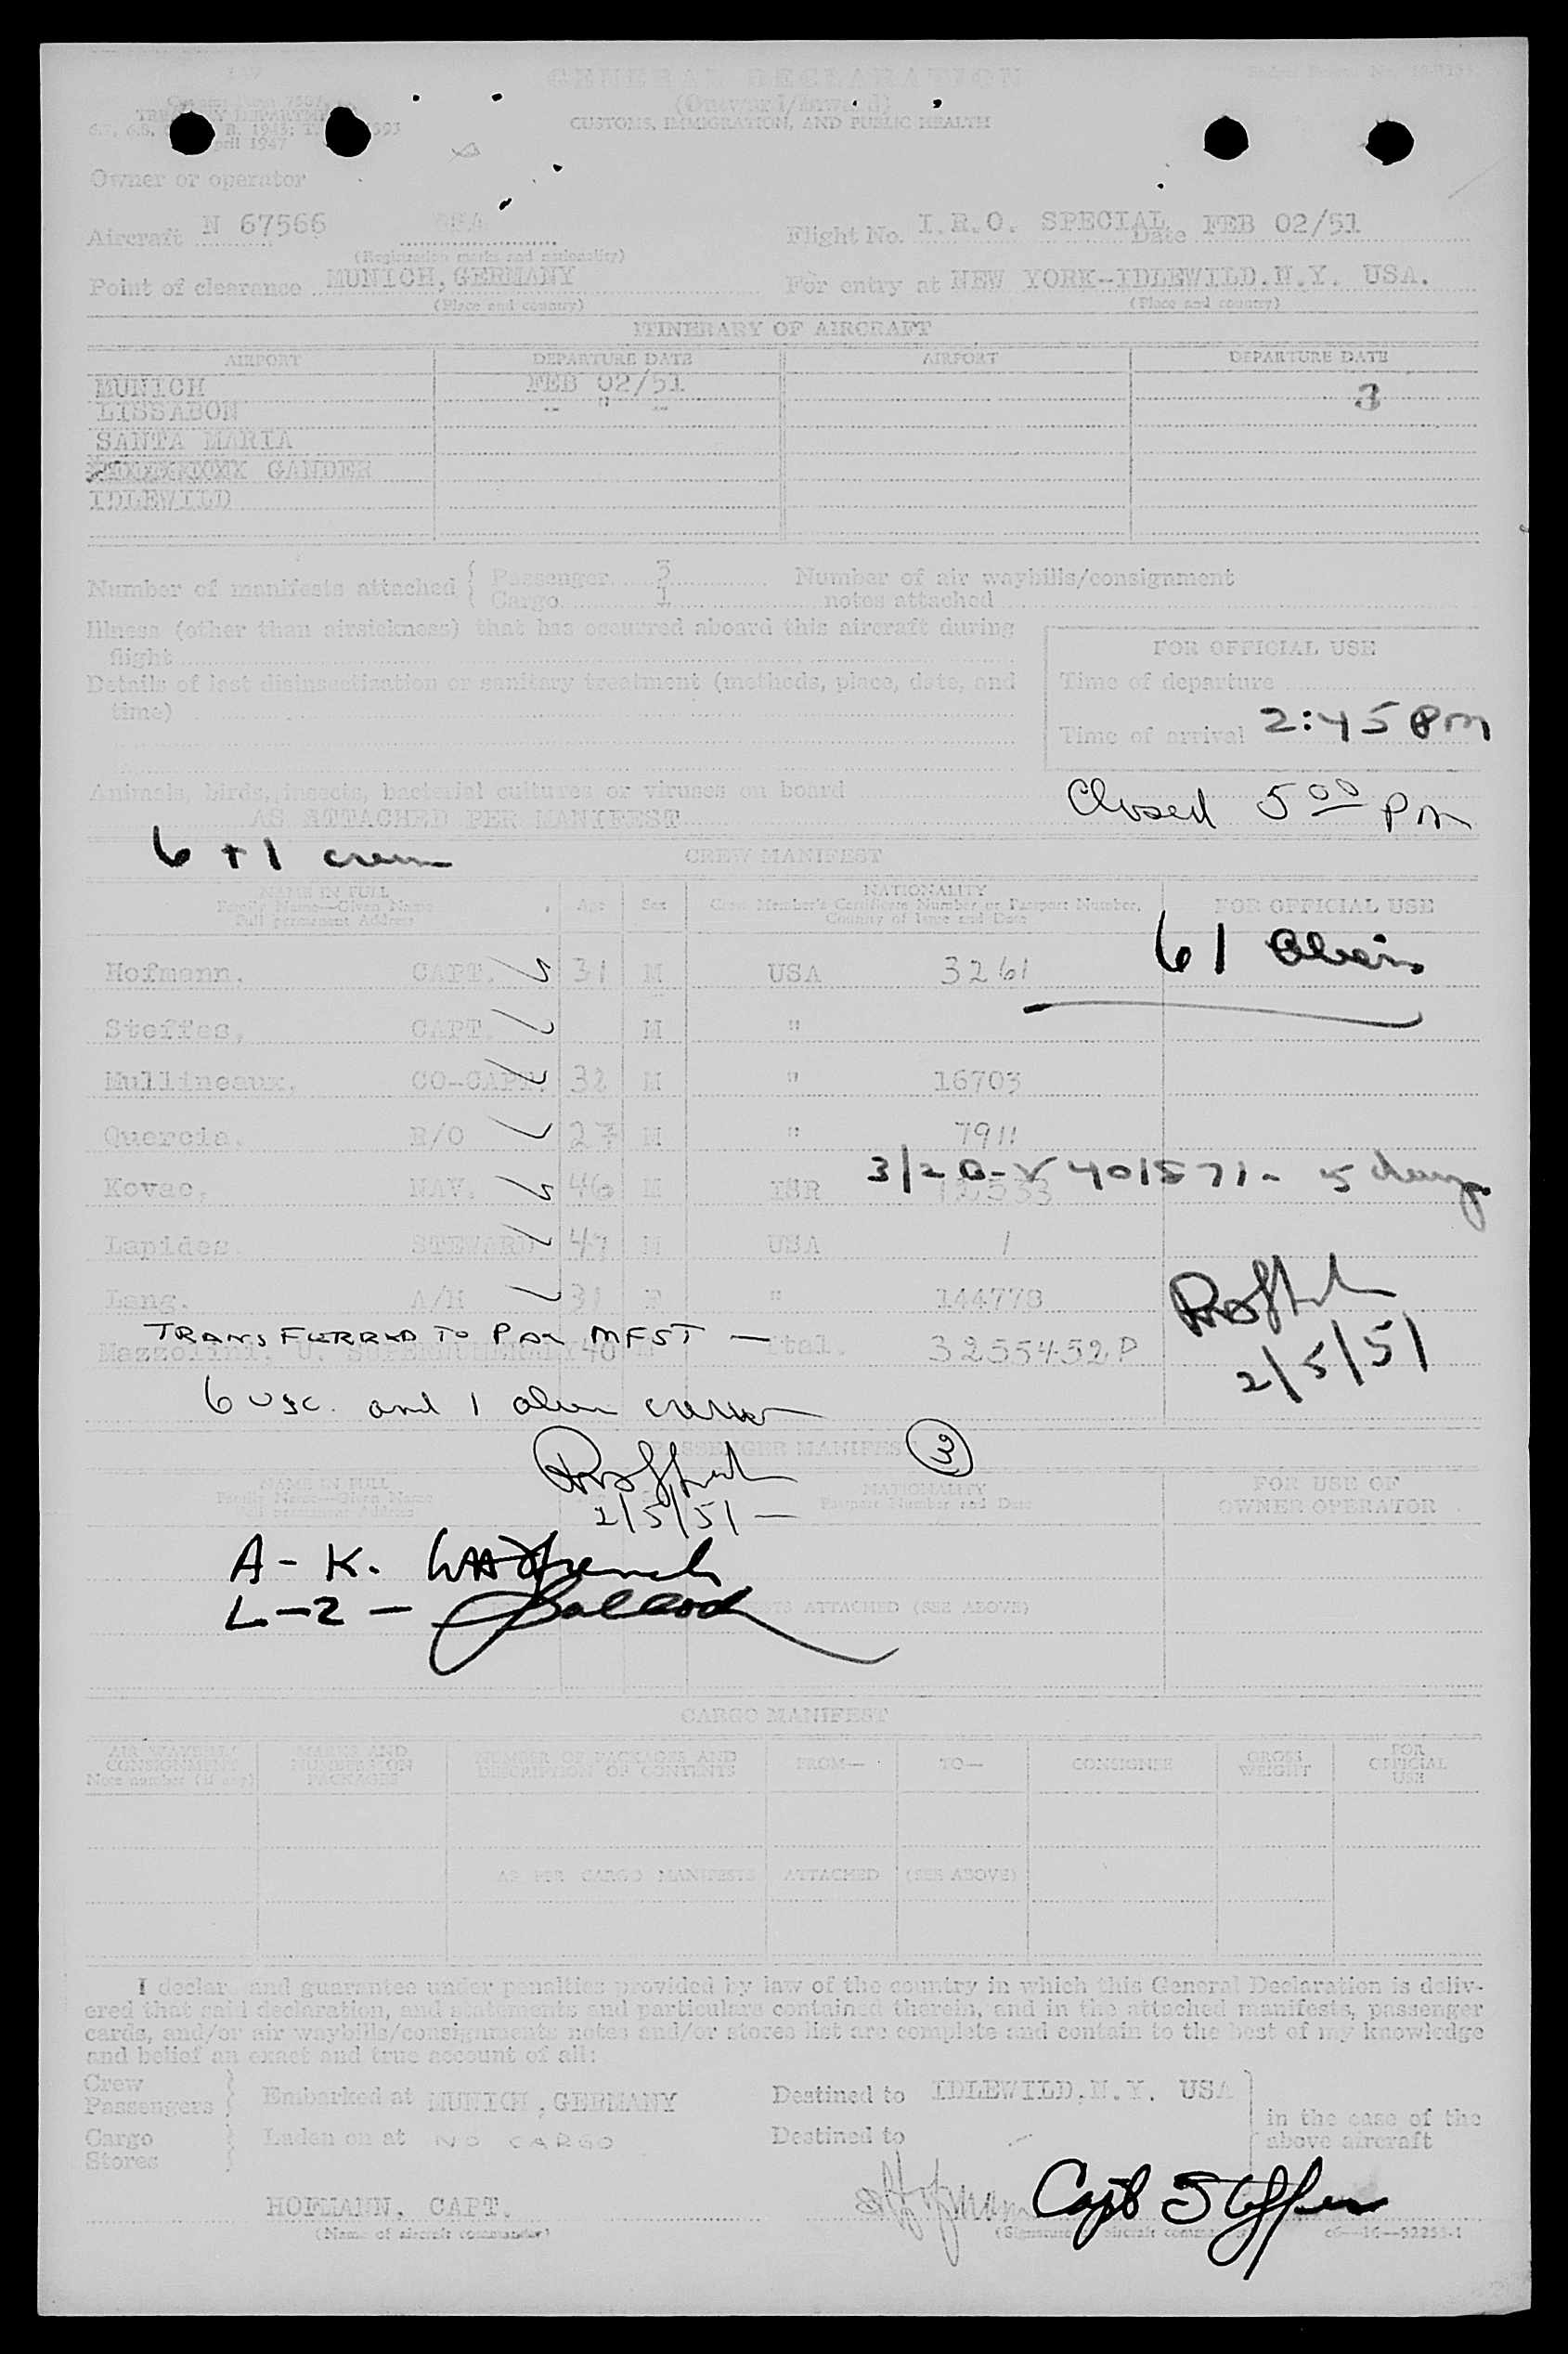 GENERAL DECLARATION
(Outward/Inward)
CUSTOMS, IMMIGRATION, AND PUBLIC HEALTH
TREASURY DEPARTMENT
April 1947
Owner or operator
Aircraft N 67566 USA Flight No. I.R.O. SPECIAL Date FEB 02/51
(Registration marks and nationality)
Point of clearance MUNICH, GERMANY For entry at NEW YORK--IDLEWILD.N.Y. USA.
(Place and country) (Place and country)
ITINERARY OF AIRCRAFT
AIRPORT DEPARTURE DATE AIRPORT DEPARTURE DATE
MUNICH FEB 02/51 3
LISSABON -- " --
SANTA MARIA
GANDER
IDLEWILD
Number of manifests attached { Passenger 3 Number of air waybills/consignment
Cargo 1 notes attached
Illness (other than airsickness) that has occurred aboard this aircraft during
flight
FOR OFFICIAL USE
Details of last disinsectization or sanitary treatment (methods, place, date, and
time)
Time of departure
Time of arrival 2:45 PM
Animals, birds, insects, bacterial cultures or viruses on board
Closed 5 00 PM
AS ATTACHED PER MANIFEST
6 + 1 crew
CREW MANIFEST
NAME IN FULL
Family Name--Given Name
Full permanent Address
Age Sex
NATIONALITY
Crew Member's Certificate Number or Passport Number,
Country of Issue and Date
FOR OFFICIAL USE
61 Aliens
Hofmann, CAPT. 31 M USA 3261
Steffes, CAPT. M "
Mullineaux, CO-CAPT. 32 M " 16703
Quercia. R/O 27 M " 7911
3/2 D-V 401571- 5 days
Kovac, NAV. 46 M ISR 12533
Lapides STEWARD 47 M USA 1
Lang. A/H 31 F " 144778
TRANSFERRED TO PAX MFST —
Mazzolini. U. 40 Ital. 3255452P
2/5/51
6 USC. and 1 alien crew
PASSENGER MANIFEST 3
2/5/51 —
NAME IN FULL
Family Name--Given Name
Full permanent Address
NATIONALITY
Passport Number and Date
FOR USE OF
OWNER OPERATOR
A - K.
L - Z -
ATTACHED (SEE ABOVE)
CARGO MANIFEST
AIR WAYBILL/
CONSIGNMENT
Note number (if any)
MARKS AND
NUMBERS ON
PACKAGES
NUMBER OF PACKAGES AND
DESCRIPTION OF CONTENTS
FROM— TO— CONSIGNEE
GROSS
WEIGHT
FOR
OFFICIAL
USE
AS PER CARGO MANIFESTS ATTACHED (SEE ABOVE)
I declare and guarantee under penalties provided by law of the country in which this General Declaration is deliv-
ered that said declaration, and statements and particulars contained therein, and in the attached manifests, passenger
cards, and/or air waybills/consignments notes and/or stores list are complete and contain to the best of my knowledge
and belief an exact and true account of all:
Crew
Passengers } Embarked at MUNICH, GERMANY Destined to IDLEWILD.N.Y. USA
in the case of the
above aircraft
Cargo
Stores } Laden on at NO CARGO Destined to —
HOFMANN, CAPT. Capt Steffes
(Name of aircraft commander) (Signature of aircraft commander)